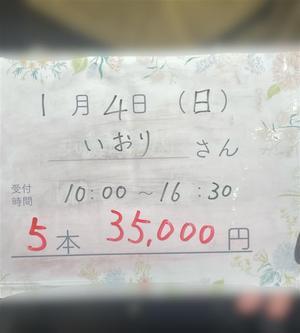 1月4日（日）
いおり さん
受付時間 10:00～16:30
5本 35,000円